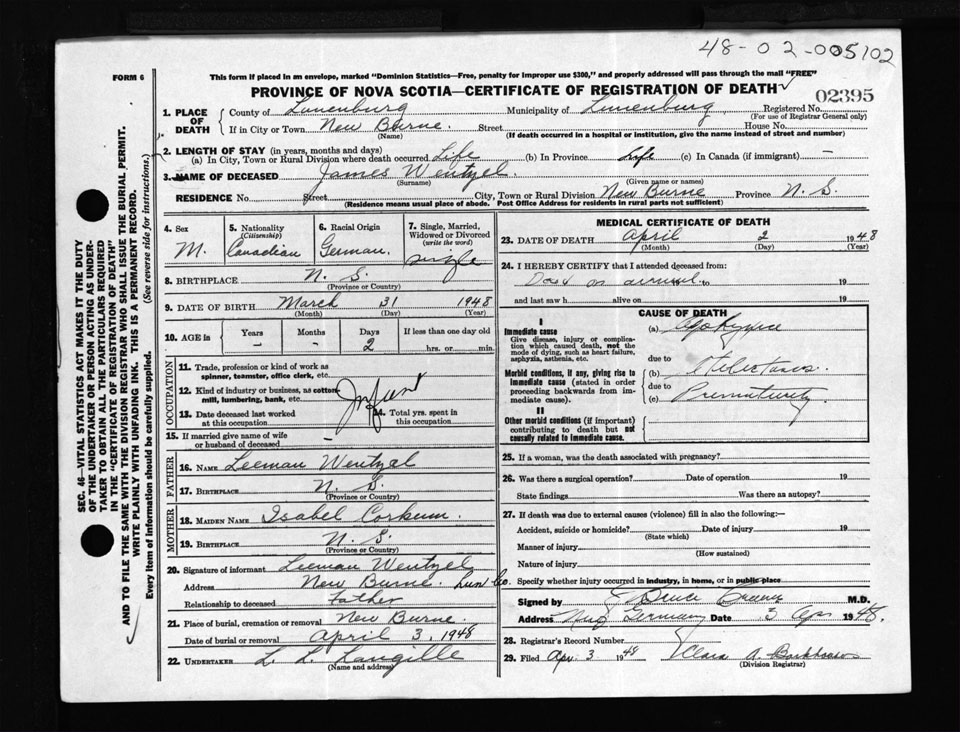 48-02-005102
FORM 6
This form if placed in an envelope, marked "Dominion Statistics—Free, penalty for improper use $300," and properly addressed will pass through the mail "FREE"
PROVINCE OF NOVA SCOTIA—CERTIFICATE OF REGISTRATION OF DEATH
02395
1. PLACE OF DEATH
County of Lunenburg Municipality of Lunenburg Registered No.
(For use of Registrar General only)
If in City or Town New Burne. Street House No.
(Name) (If death occurred in a hospital or institution, give the name instead of street and number)
2. LENGTH OF STAY (in years, months and days)
(a) In City, Town or Rural Division where death occurred Life (b) In Province Life (c) In Canada (if immigrant) —
3. NAME OF DECEASED James Wentzel.
(Surname) (Given name or names)
RESIDENCE No. Street City, Town or Rural Division New Burne Province N. S.
(Residence means usual place of abode. Post Office Address for residents in rural parts not sufficient)
4. Sex
M.
5. Nationality
(Citizenship)
Canadian
6. Racial Origin
German.
7. Single, Married, Widowed or Divorced
(write the word)
single
8. BIRTHPLACE N. S.
(Province or Country)
9. DATE OF BIRTH March 31 1948
(Month) (Day) (Year)
10. AGE in
Years Months Days If less than one day old
— — 2 hrs. or min.
OCCUPATION
11. Trade, profession or kind of work as spinner, teamster, office clerk, etc.
12. Kind of industry or business, as cotton mill, lumbering, bank, etc.
Infant
13. Date deceased last worked at this occupation
14. Total yrs. spent in this occupation
15. If married give name of wife or husband of deceased —
FATHER
16. NAME Leeman Wentzel
17. BIRTHPLACE N. S.
(Province or Country)
MOTHER
18. MAIDEN NAME Isabel Corkum.
19. BIRTHPLACE N. S.
(Province or Country)
20. Signature of informant Leeman Wentzel
Address New Burne. Lun Co.
Relationship to deceased father
21. Place of burial, cremation or removal New Burne.
Date of burial or removal April 3, 1948
22. UNDERTAKER L. L. Langille
(Name and address)
MEDICAL CERTIFICATE OF DEATH
23. DATE OF DEATH April 2 1948
(Month) (Day) (Year)
24. I HEREBY CERTIFY that I attended deceased from:
Dead on arrival 19 to 19
and last saw h alive on 19
CAUSE OF DEATH
I
Immediate cause
Give disease, injury or complication which caused death, not the mode of dying, such as heart failure, asphyxia, asthenia, etc.
(a)
due to
Morbid conditions, if any, giving rise to immediate cause (stated in order proceeding backwards from immediate cause).
(b)
due to
(c) Prematurity
II
Other morbid conditions (if important) contributing to death but not causally related to immediate cause.
25. If a woman, was the death associated with pregnancy?
26. Was there a surgical operation? Date of operation 19
State findings Was there an autopsy?
27. If death was due to external causes (violence) fill in also the following:—
Accident, suicide or homicide? Date of injury 19
(State which)
Manner of injury
(How sustained)
Nature of injury
Specify whether injury occurred in industry, in home, or in public place
Signed by M.D.
Address New Germany Date 3 Apr 1948.
28. Registrar's Record Number
29. Filed Apr. 3 1948 Clara A.
(Division Registrar)
SEC. 46—VITAL STATISTICS ACT MAKES IT THE DUTY
OF THE UNDERTAKER OR PERSON ACTING AS UNDER-
TAKER TO OBTAIN ALL THE PARTICULARS REQUIRED
IN THE "CERTIFICATE OF REGISTRATION OF DEATH"
AND TO FILE THE SAME WITH THE DIVISION REGISTRAR WHO SHALL ISSUE THE BURIAL PERMIT.
WRITE PLAINLY WITH UNFADING INK. THIS IS A PERMANENT RECORD.
Every item of information should be carefully supplied. (See reverse side for instructions.)